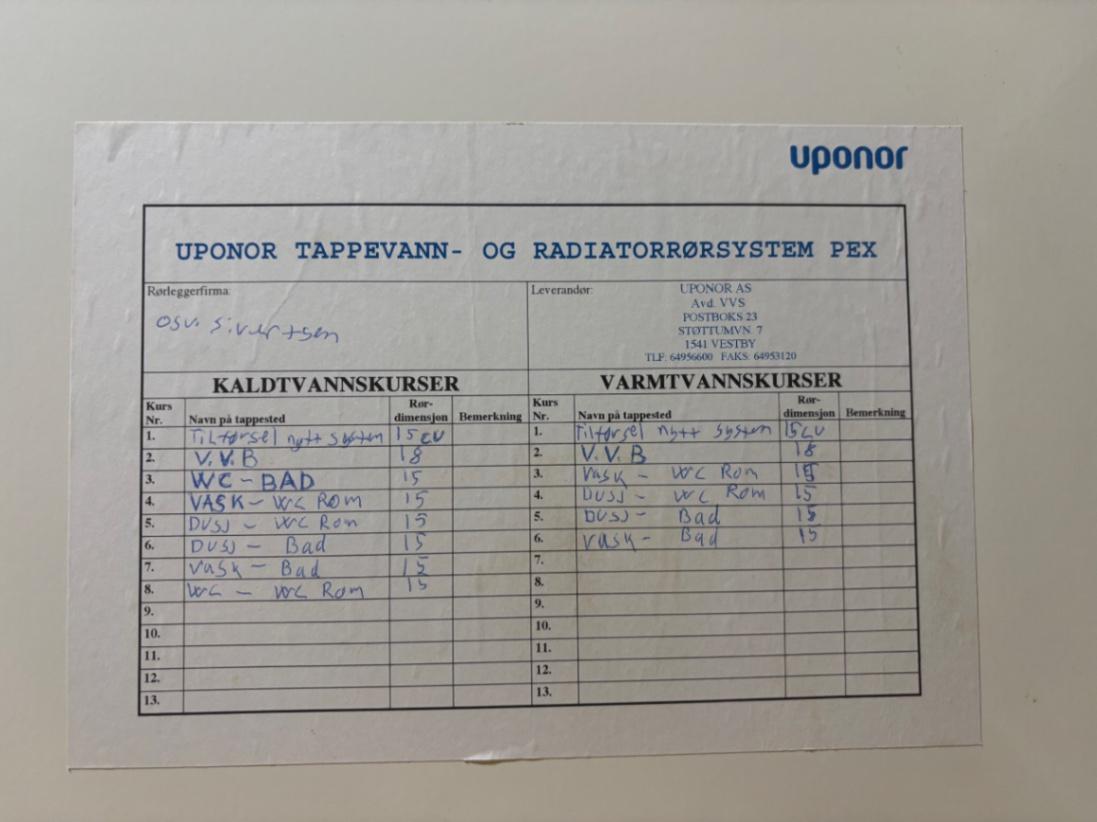 uponor
UPONOR TAPPEVANN- OG RADIATORRØRSYSTEM PEX
Rørleggerfirma:
Osv. Sivertsen
Leverandør:
UPONOR AS
Avd. VVS
POSTBOKS 23
STØTTUMVN. 7
1541 VESTBY
TLF: 64956600 FAKS: 64953120
KALDTVANNSKURSER
Kurs Nr. Navn på tappested Rør-dimensjon Bemerkning
1. Tilførsel nytt system 15 CU
2. V.V.B 18
3. WC - BAD 15
4. VASK - WC Rom 15
5. Dusj - WC Rom 15
6. Dusj - Bad 15
7. Vask - Bad 15
8. WC - WC Rom 15
9.
10.
11.
12.
13.
VARMTVANNSKURSER
Kurs Nr. Navn på tappested Rør-dimensjon Bemerkning
1. Tilførsel nytt system 15 CU
2. V.V.B 18
3. Vask - WC Rom 15
4. Dusj - WC Rom 15
5. Dusj - Bad 15
6. Vask - Bad 15
7.
8.
9.
10.
11.
12.
13.